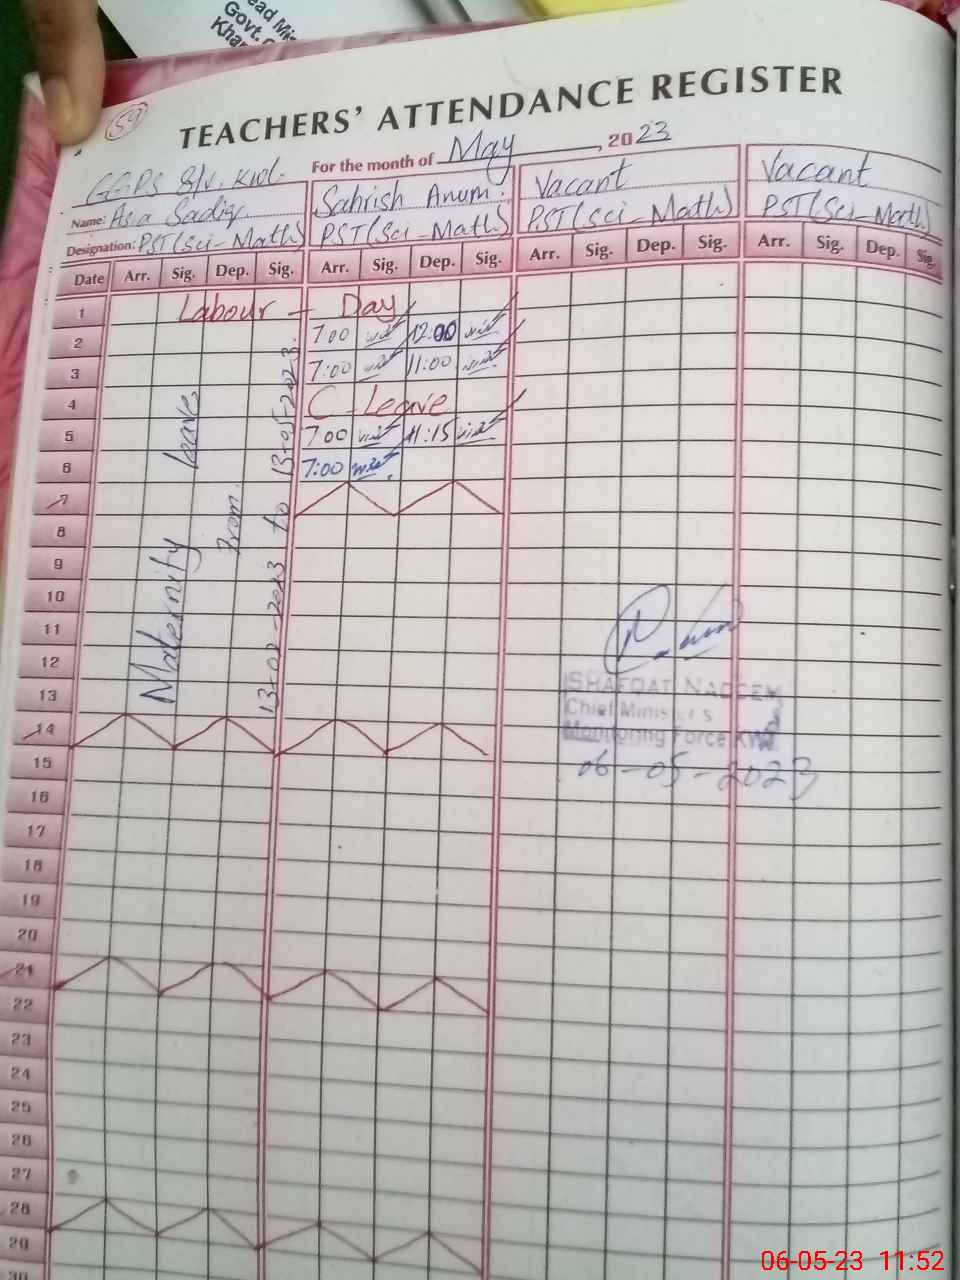 ead Mi
Govt.
Kha
59
TEACHERS' ATTENDANCE REGISTER
For the month of May, 2023
GGPS 8/V. Kwl.
Name: Asia Sadiq Sahrish Anum. Vacant Vacant
Designation: PST(Sci-Math) PST(Sci-Math) PST(Sci-Math) PST(Sci-Math)
Date Arr. Sig. Dep. Sig. Arr. Sig. Dep. Sig. Arr. Sig. Dep. Sig. Arr. Sig. Dep. Sig.
1 Labour - Day
2 7:00 12:00
3 7:00 11:00
4 C-Leave
5 7:00 11:15
6 7:00
7
8
9
10
11
12
13
14
15
16
17
18
19
20
21
22
23
24
25
26
27
28
29
30
Maternity Leave
From
13-02-2023 to 13-05-2023.
SHAFQAT NADEEM
Chief Minister's
Monitoring Force KWL
06-05-2023
06-05-23 11:52